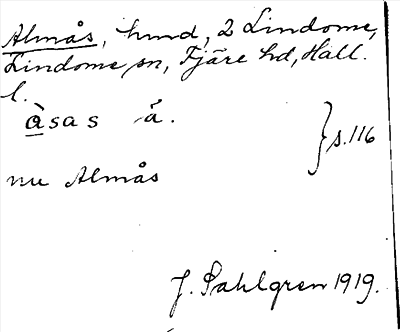 Almås, hmd, 2 Lindome,
Lindome sn, Fjäre hd, Hall.
l.
àsas å.
} s. 116
nu Almås
J. Sahlgren 1919.